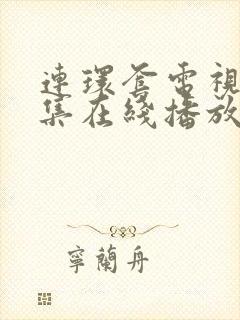 連環套電視
集在綫播放
寧蘭舟